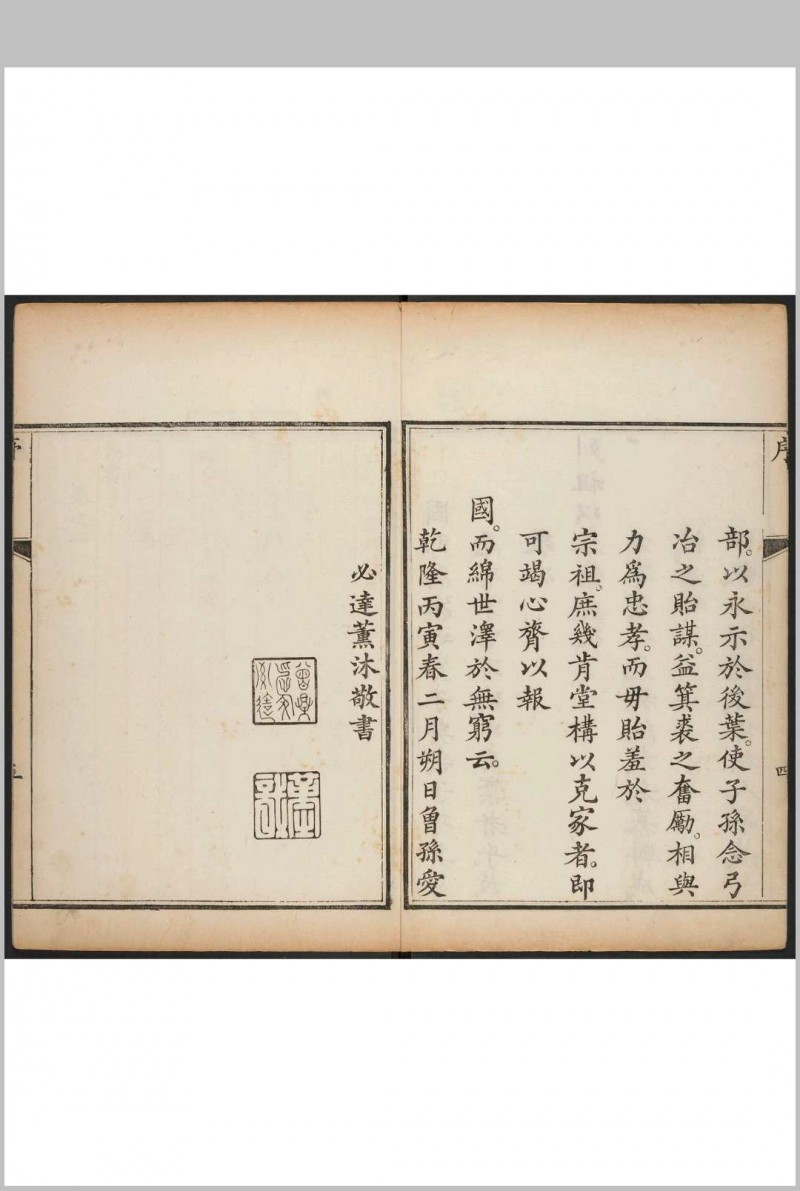 序
四
部。以永示於後葉。使子孫念弓
冶之貽謀。益箕裘之奮勵。相與
力爲忠孝。而毋貽羞於
宗祖。庶幾肯堂構以克家者。即
可竭心膂以報
國。而綿世澤於無窮云。
乾隆丙寅春二月朔日曾孫愛
必達薰沐敬書
五